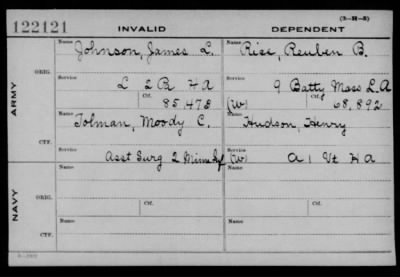 (3-H-5)
122121 INVALID DEPENDENT
ARMY
ORIG.
Name Johnson, James L. Name Rice, Reuben B.
Service L 2 R H A Service 9 Batty Mass L.A
Ctf. 85,478 (W) Ctf. 68,892
CTF.
Name Tolman, Moody C. Name Hudson, Henry
Service Asst Surg 2 Minn Inf Service (W) A 1 Vt H A
NAVY
ORIG.
Name Name
Service Service
Ctf. Ctf.
CTF.
Name Name